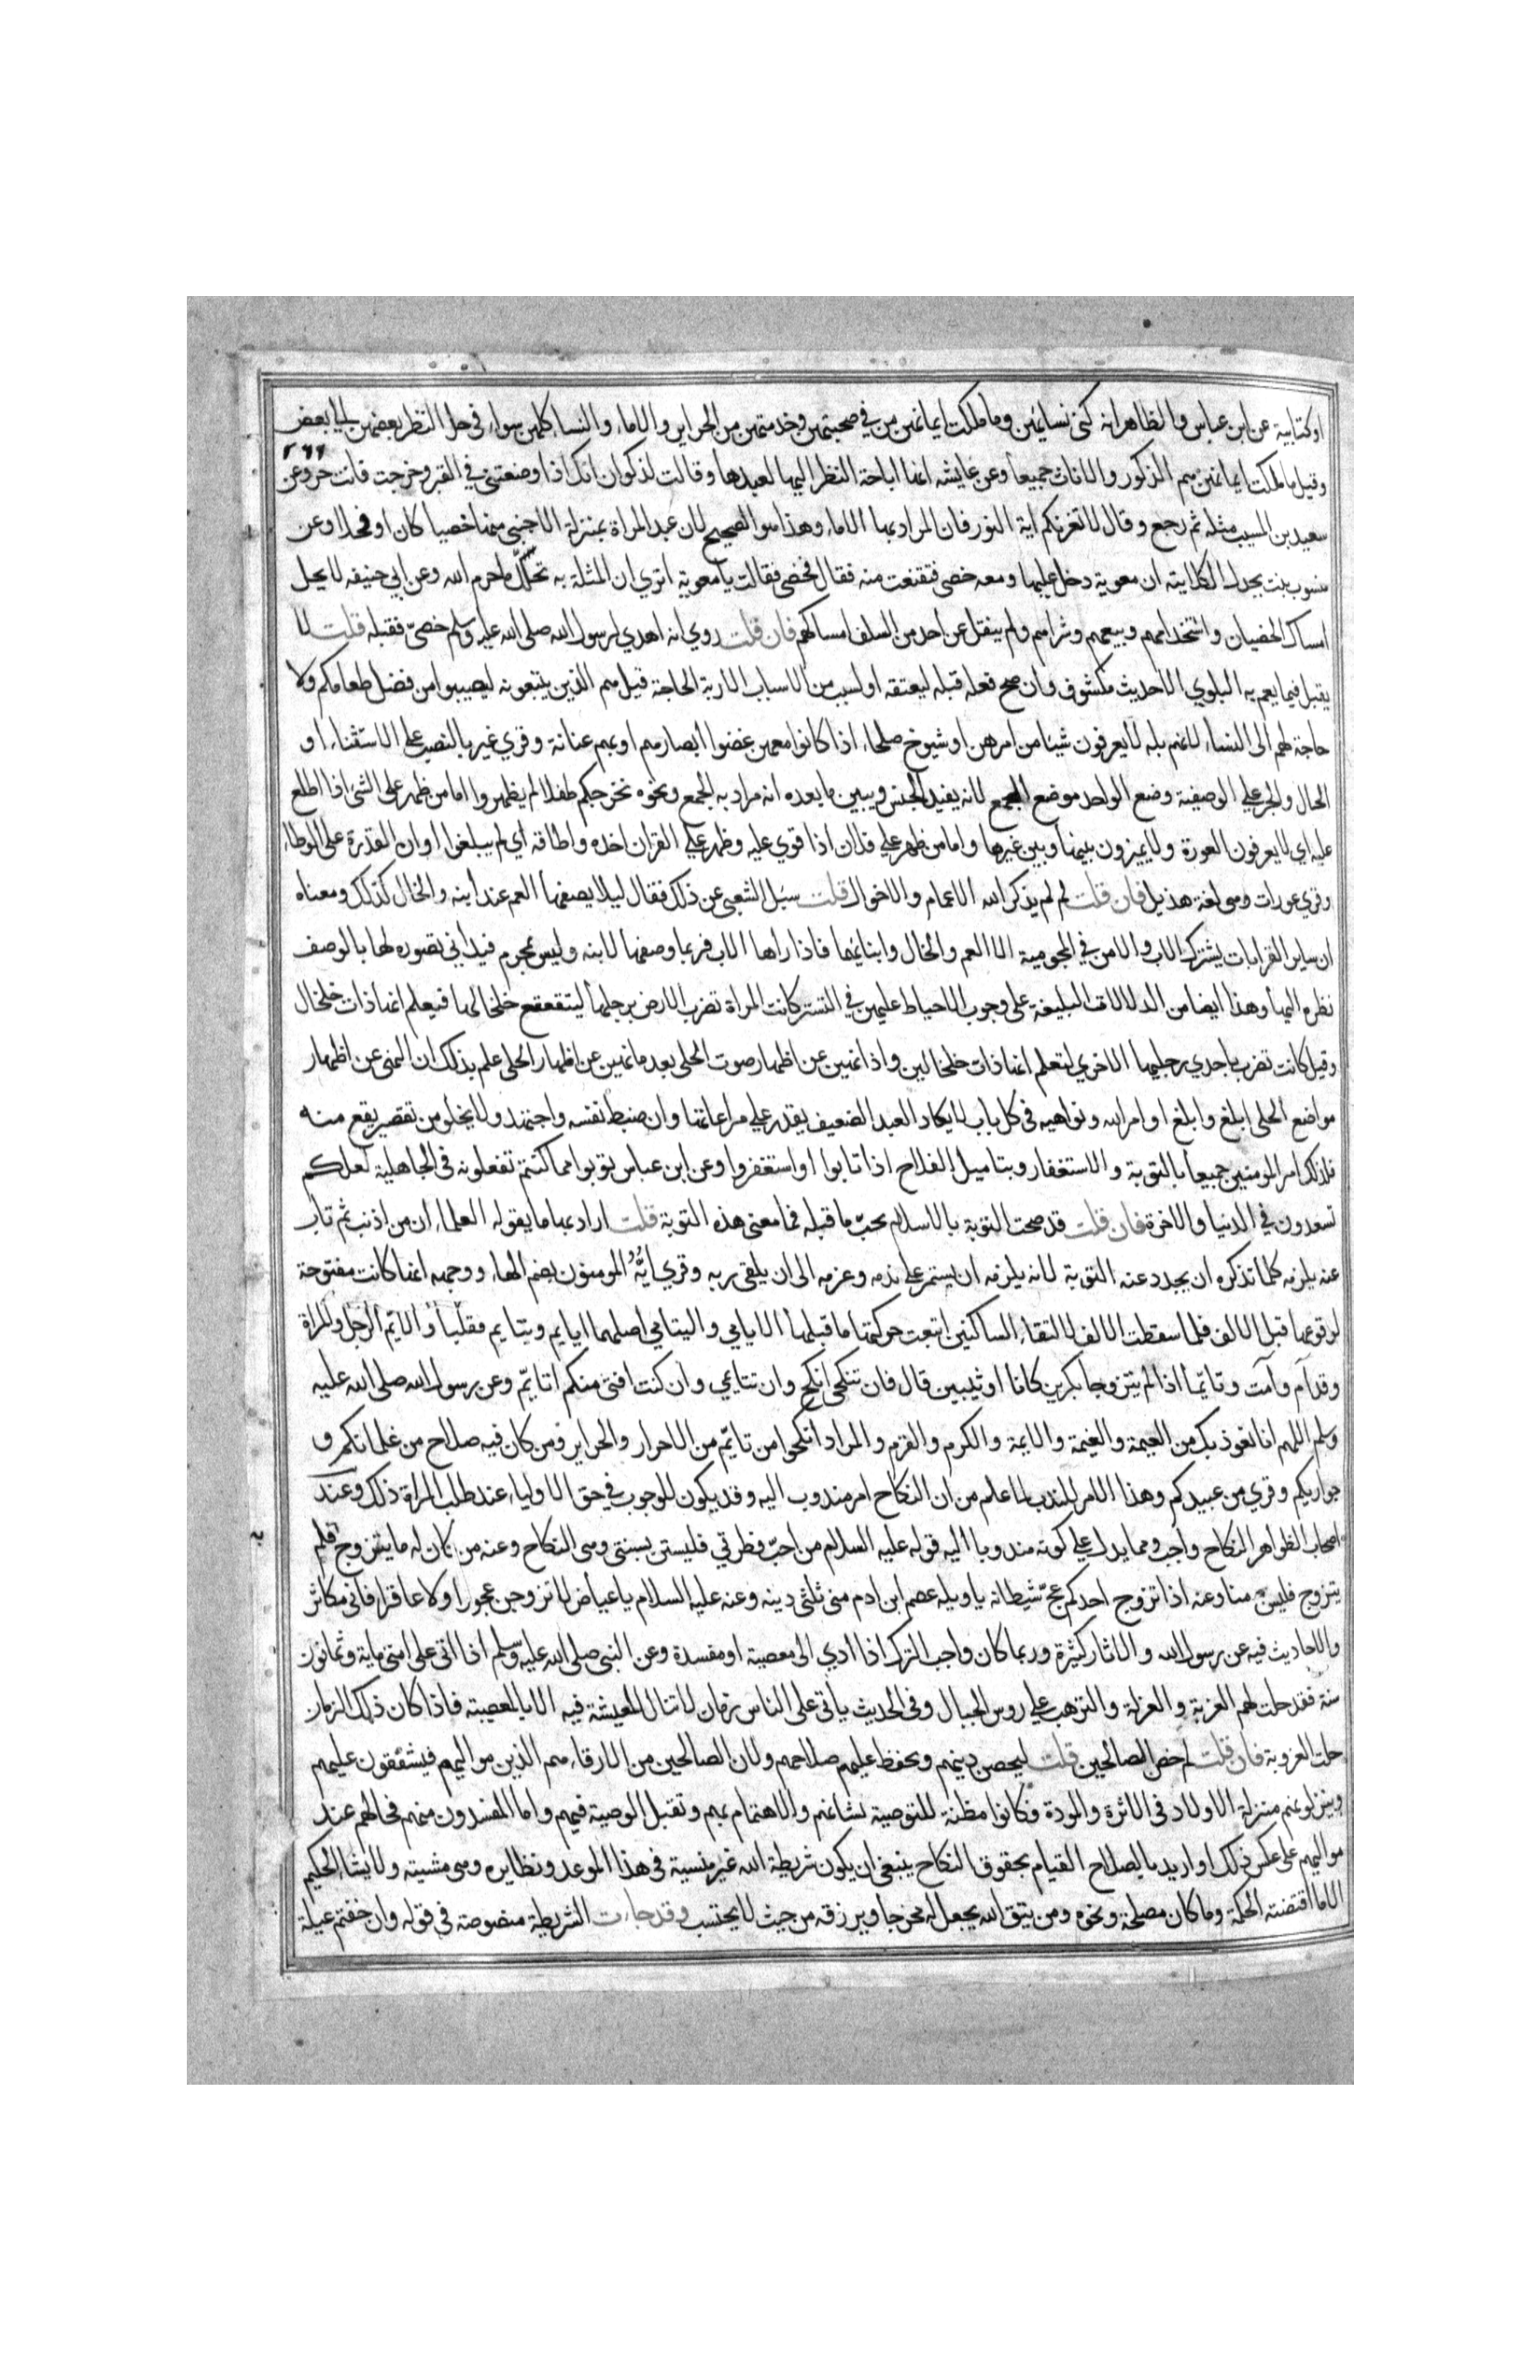 او كتابية عن ابن عباس والظاهر انه كنى نسائهن وما ملكت ايمانهن من في صحبتهن وخدمتهن من الحراير والاماء والنساء كلهن سواء في حل النظر بعضهن الى بعض
٢٦٦
وقيل ما ملكت ايمانهن هم الذكور والاناث جميعا وعن عايشه انها اباحة النظر اليها لعبدها وقالت لذكوان انك اذا وضعتني في القبر وخرجت فانت حر وعن
سعيد بن المسيب مثله ثم رجع وقال لا تغرنكم اية النور فان المراد بها الاماء وهذا هو الصحيح لان عبد المراة بمنزلة الاجنبي منها خصيا كان او فحلا وعن
ميسون بنت بحدل الكلابية ان معوية دخل عليها ومعه خصي فتقنعت منه فقال خصي فقالت يا معوية اتري ان المثلة به تحلل ما حرم الله وعن ابي حنيفه لا يحل
امساك الخصيان واستخدامهم وبيعهم وشراهم ولم ينقل عن احد من السلف امساكهم فان قلت روي انه اهدي لرسول الله صلى الله عليه وسلم خصي فقبله قلت لا
يقبل فيما يعم به البلوي الا حديث مكشوف وان صح فعله قبله ليعتقه او لسبب من الاسباب الاربة الحاجة قيل هم الذين يتبعونه ليصيبوا من فضل طعامكم ولا
حاجة لهم الى النساء لانهم بله لا يعرفون شيئا من امرهن او شيوخ صلحاء اذا كانوا معهن غضوا ابصارهم او بهم عنانة وقري غير بالنصب على الاستثناء او
الحال والجر على الوصفية وضع الواحد موضع الجمع لانه يفيد الجنس ويبين ما بعده انه مراد به الجمع ونحوه نخرجكم طفلا لم يظهروا اما من ظهر على الشئ اذا اطلع
عليه اي لا يعرفون العورة ولا يميزون بينها وبين غيرها واما من ظهر على فلان اذا قوي عليه وظهر على القران اخذه واطاقه اي لم يبلغوا اوان القدرة على الوطاء
وقري عورات وهي لغة هذيل فان قلت لم لم يذكر الله الاعمام والاخوال قلت سئل الشعبي عن ذلك فقال ليلا يصفها العم عند ابنه والخال كذلك ومعناه
ان ساير القرابات يشترك الاب والابن في المحرمية الا العم والخال وابنائهما فاذا راها الاب فربما وصفها لابنه وليس بمحرم فيداني تصوره لها بالوصف
نظره اليها وهذا ايضا من الدلالات البليغة على وجوب الاحتياط عليهن في التستر كانت المراة تضرب الارض برجلها ليتقعقع خلخالها فيعلم انها ذات خلخال
وقيل كانت تضرب باحدي رجليها الاخري لتعلم انها ذات خلخالين واذا نهين عن اظهار صوت الحلى بعد ما نهين عن اظهار الحلى علم بذلك ان النهى عن اظهار
مواضع الحلى ابلغ وابلغ اوامر الله ونواهيه في كل باب لا يكاد العبد الضعيف يقدر على مراعاتها وان ضبط نفسه واجتهد ولا يخلو من تقصير يقع منه
فلذلك امر المومنين جميعا بالتوبة والاستغفار وبتاميل الفلاح اذا تابوا او استغفروا وعن ابن عباس توبوا مما كنتم تفعلونه في الجاهلية لعلكم
تسعدون في الدنيا والاخرة فان قلت قد صحت التوبة بالاسلام يجب ما قبله فما معنى هذه التوبة قلت اراد بها ما يقوله العلماء ان من اذنب ثم تاب
عنه يلزمه كلما تذكره ان يجدد عنه التوبة لانه يلزمه ان يستمر على ندمه وعزمه الى ان يلقى ربه وقري ايُّهُ المومنون بضم الهاء ووجهه انها كانت مفتوحة
لوقوعها قبل الالف فلما سقطت الالف لالتقاء الساكنين اتبعت حركتها ما قبلها الايامي واليتامي اصلهما ايايم ويتايم فقلبا والايم الرجل والمراة
وقد آم وآمت وتايما اذا لم يتزوجا بكرين كانا او ثيبين قال فان تنكحي انكح وان تتايمي وان كنت افتى منكم اتايم وعن رسول الله صلى الله عليه
وسلم اللهم انا نعوذ بك من العيمة والغيمة والايمة والكرم والقزم والمراد انكحوا من تايم من الاحرار والحراير ومن كان فيه صلاح من غلمانكم و
جواريكم وقري من عبيدكم وهذا الامر للندب لما علم من ان النكاح امر مندوب اليه وقد يكون للوجوب في حق الاولياء عند طلب المراة ذلك وعند
اصحاب الظواهر النكاح واجب ومما يدل على كونه مندوبا اليه قوله عليه السلام من احب فطرتي فليستن بسنتي وهي النكاح وعنه من كان له ما يتزوج فلم
يتزوج فليس منا وعنه اذا تزوج احدكم عج شيطانه يا ويله عصم ابن ادم منى ثلثى دينه وعنه عليه السلام يا عياض لا تزوجن عجورا ولا عاقرا فاني مكاثر
والاحاديث فيه عن رسول الله والاثار كثيرة وربما كان واجب الترك اذا ادي الى معصية او مفسدة وعن النبي صلى الله عليه وسلم اذا اتى على امتى ماية وثمانون
سنة فقد حلت لهم العزبة والعزلة والترهب على روس الجبال وفي الحديث ياتى على الناس زمان لا تنال المعيشة فيه الا بالمعصية فاذا كان ذلك الزمان
حلت العزوبة فان قلت لم خص الصالحين قلت ليحصن دينهم ويحفظ عليهم صلاحهم ولان الصالحين من الارقاء هم الذين مواليهم فيشفقون عليهم
وينزلونهم منزلة الاولاد في الاثرة والمودة وكانوا مظنة للتوصية بشانهم والاهتمام بهم وتقبل الوصية فيهم واما المفسدون منهم فحالهم عند
مواليهم على عكس ذلك او اريد بالصلاح القيام بحقوق النكاح ينبغي ان يكون شريطة الله غير منسية في هذا الموعد ونظايره وهي مشيته ولا يشاء الحكيم
الا ما اقتضته الحكمة وما كان مصلحة ونحوه ومن يتق الله يجعل له مخرجا ويرزقه من حيث لا يحتسب وقد جاءت الشريطة منصوصة في قوله وان خفتم عيلة